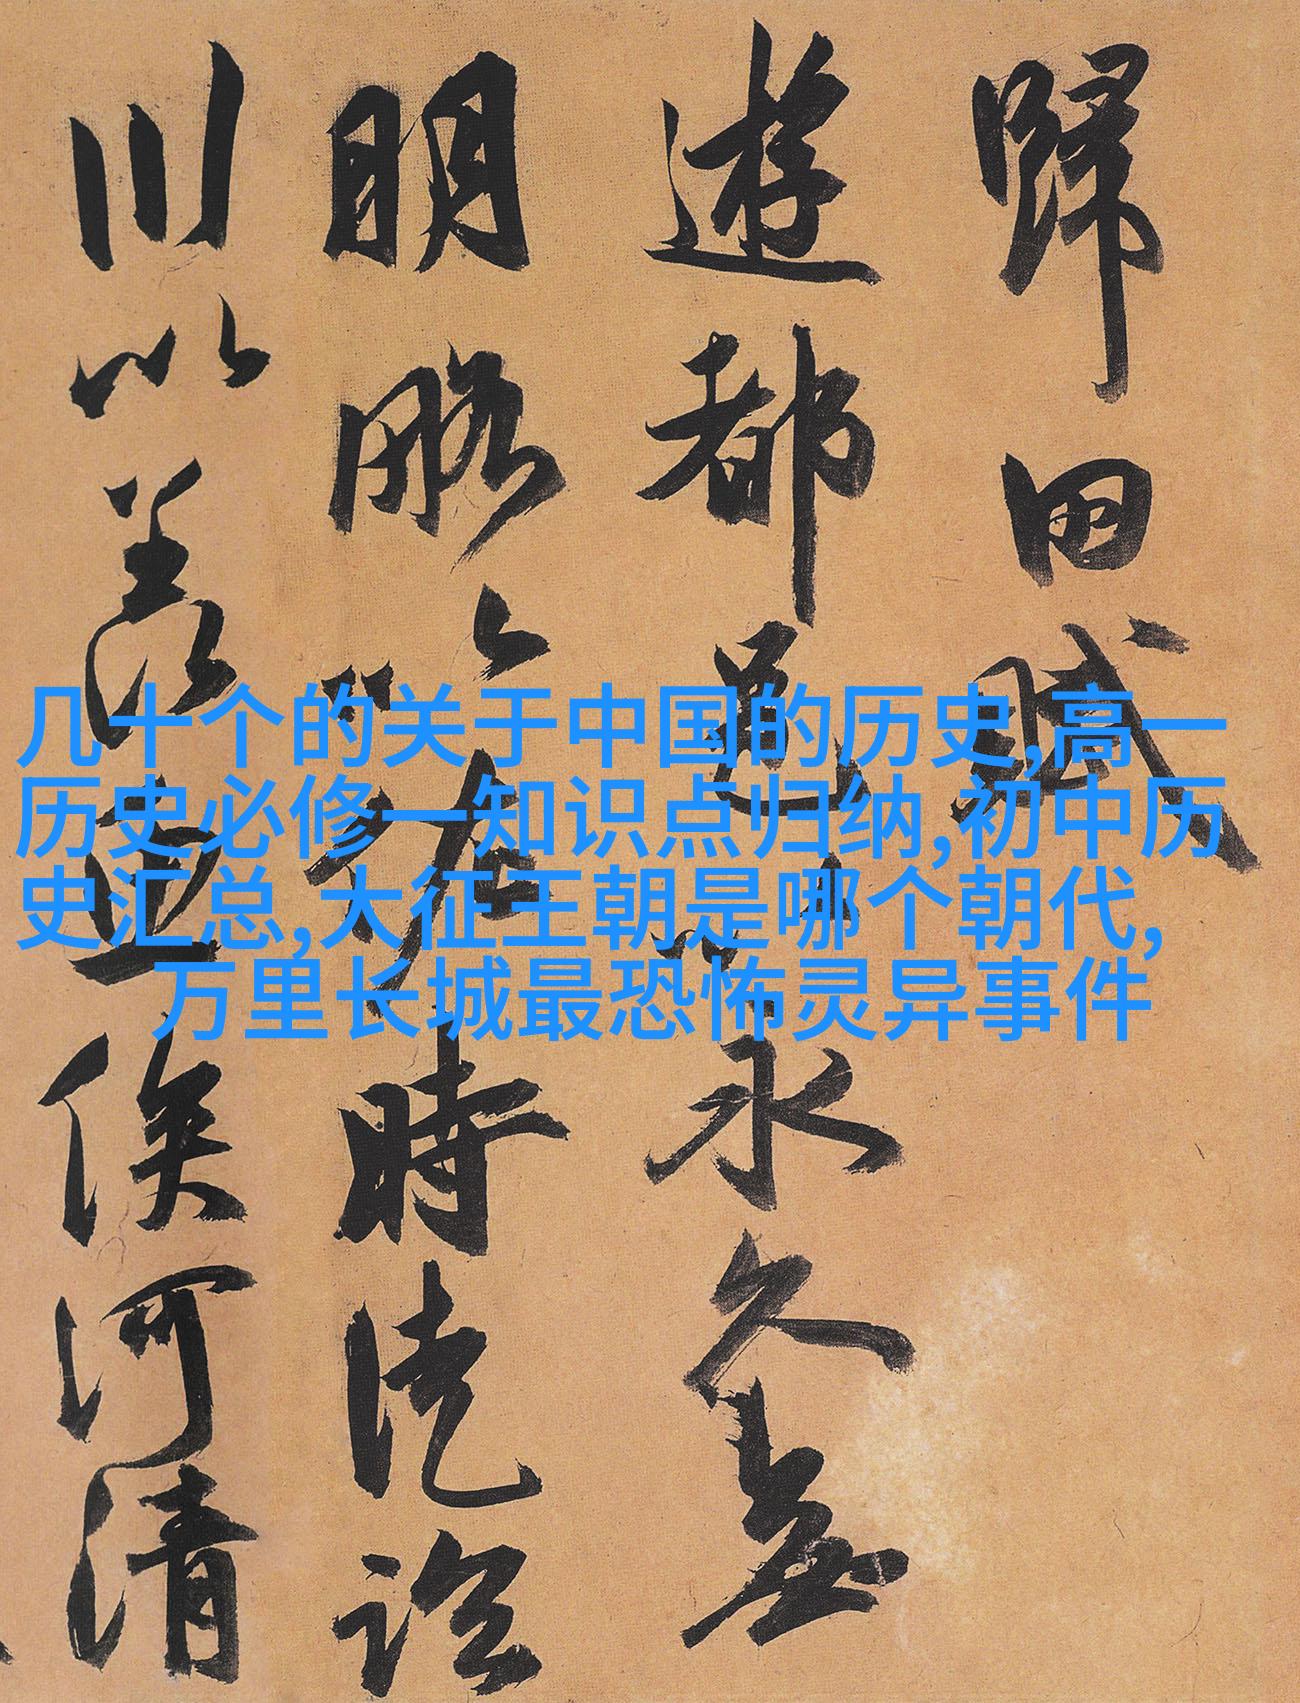 歸田賦
遊都邑以永久無
明略以佐時徒臨
川以羨魚俟河清
几十个的关于中国的历史,高一
历史必修一知识点归纳,初中历
史汇总,大征王朝是哪个朝代,
万里长城最恐怖灵异事件